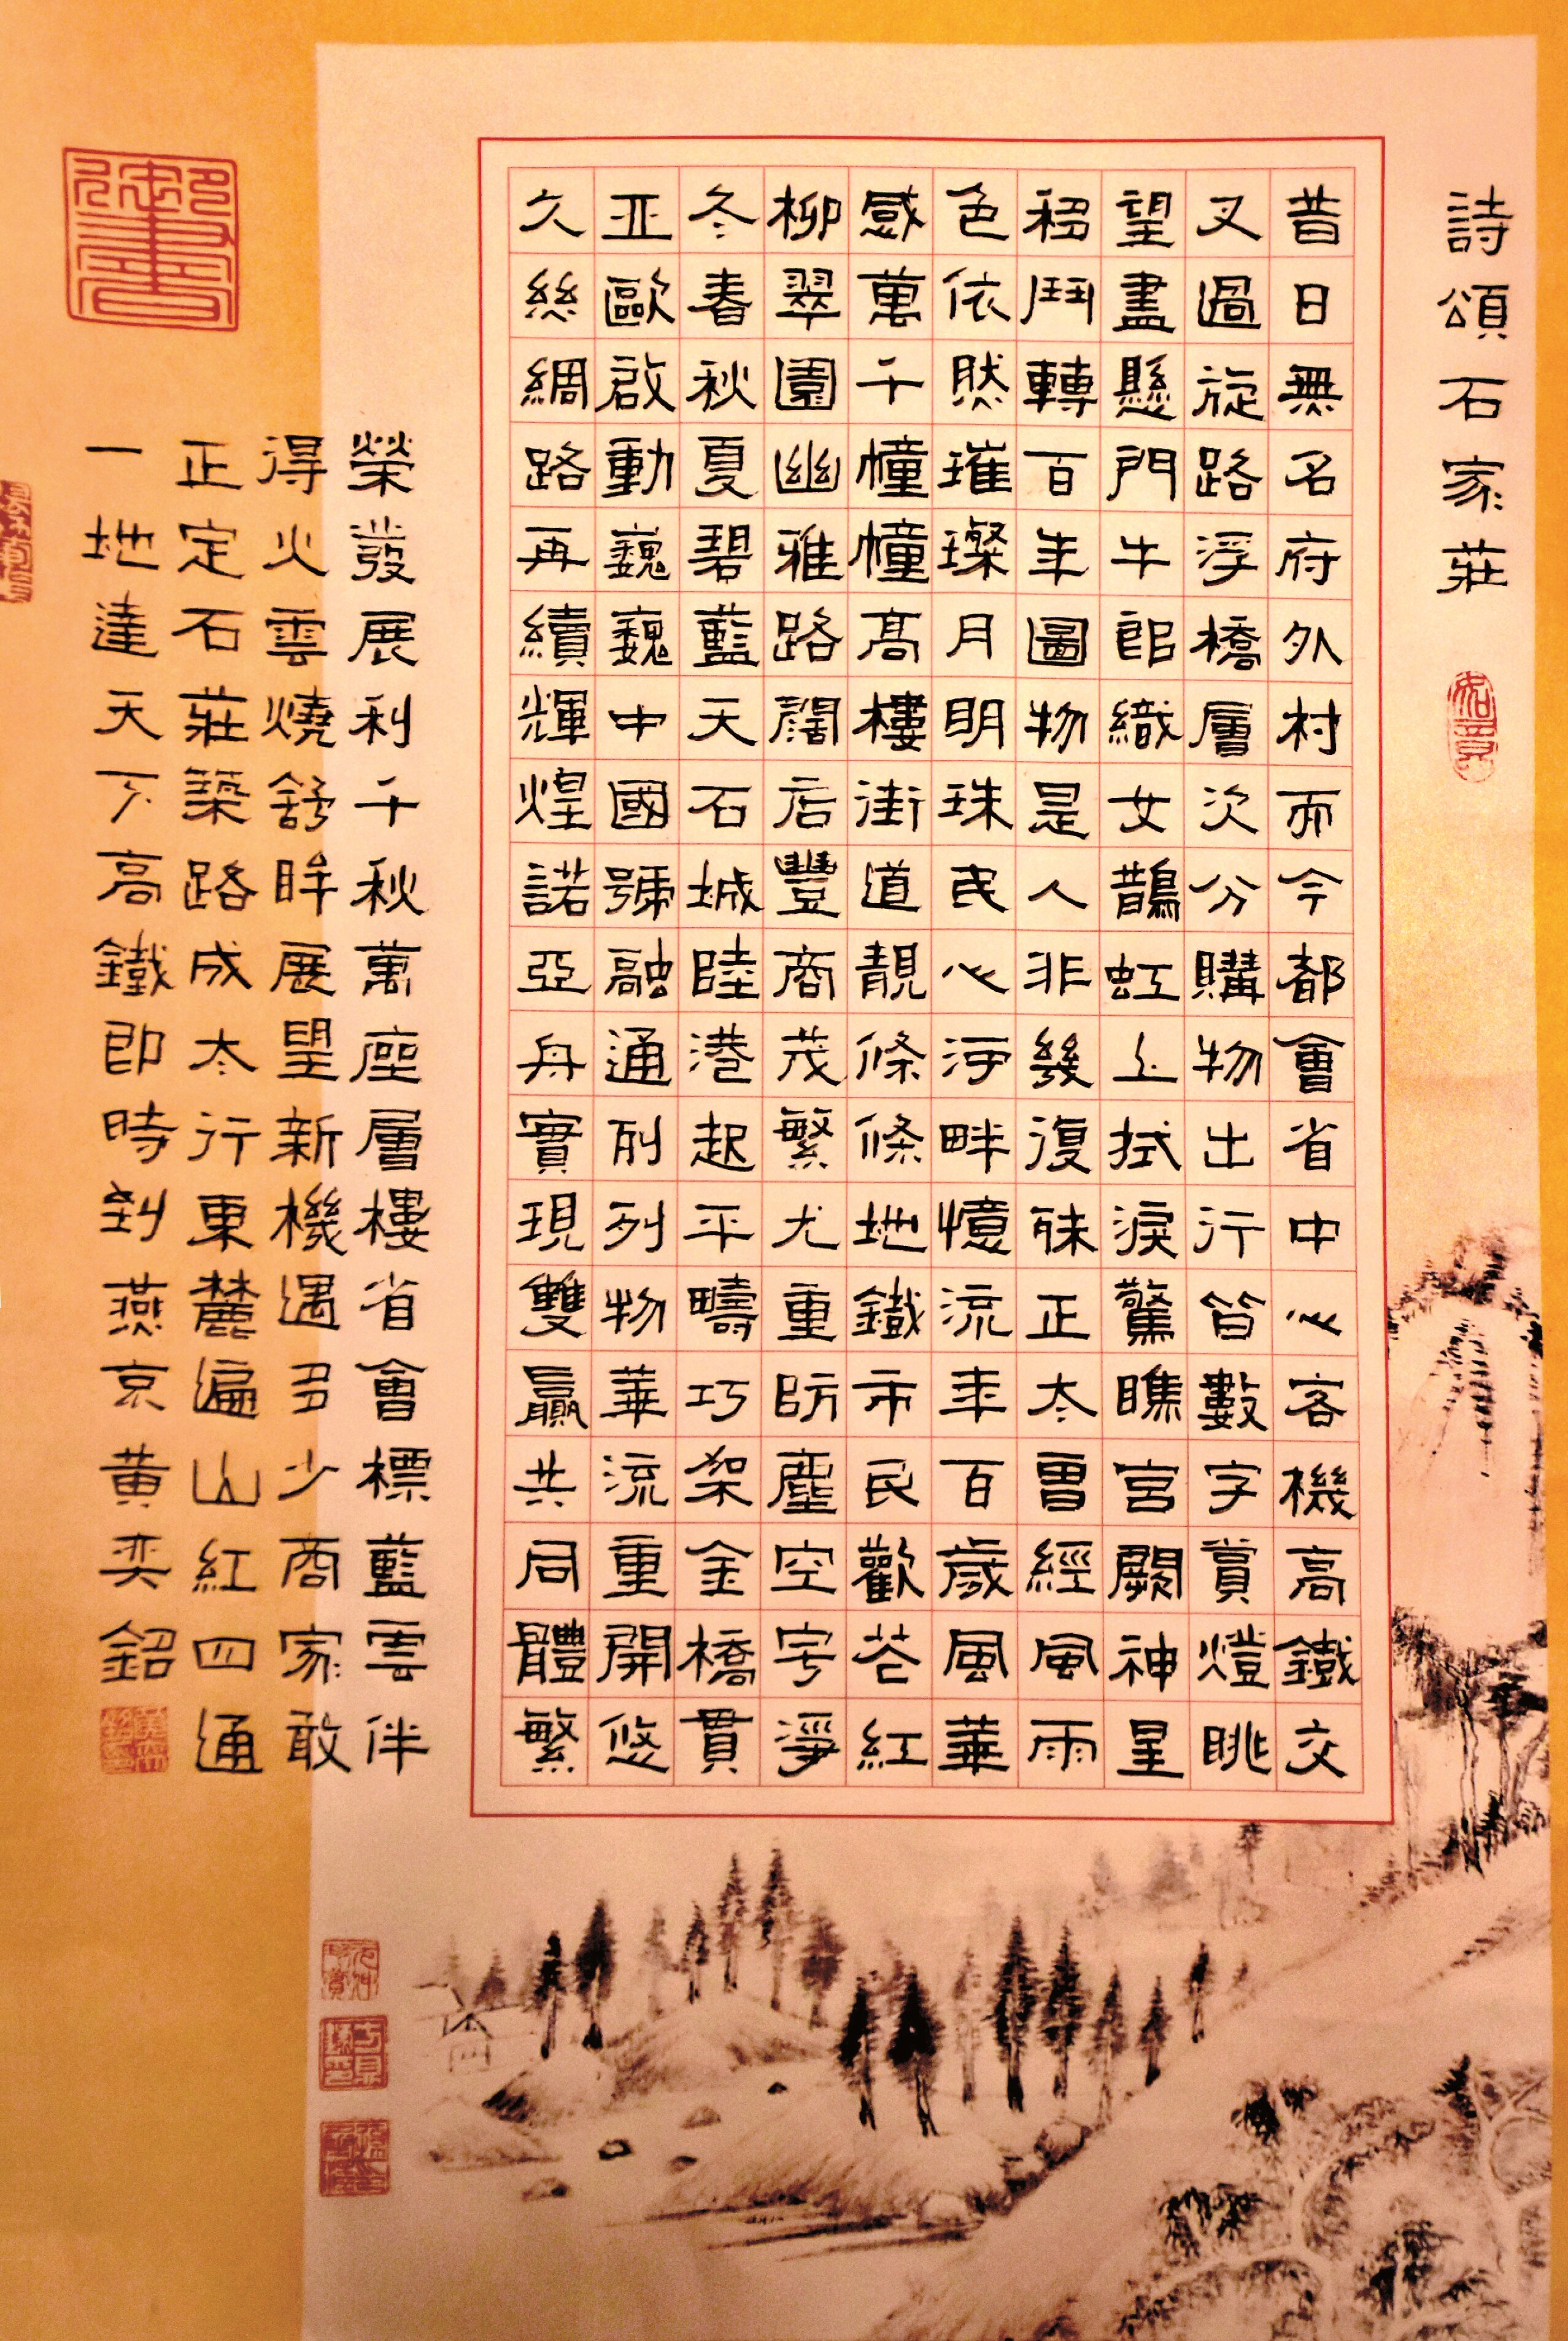 詩頌石家莊
昔日無名府外村而今都會省中心客機高鐵交
叉過旋路浮橋層次分購物出行笛數字賞燈眺
望盡懸門牛郎織女鵲虹上拭淚驚瞧宮闕神星
移鬥轉百年圖物是人非幾復昧正太曾經風雨
色依然璀璨月明珠民心河畔憶流年百歲風華
感萬千幢幢高樓街道靚條條地鐵市民歡芒紅
柳翠園幽雅路闊店豐商茂繁尤重防塵空宇淨
冬春秋夏碧藍天石城陸港起平疇巧架金橋貫
亚歐啟動巍巍中國號融通列列物華流重開悠
久絲綢路再續輝煌諾亞舟實現雙贏共同體繁
榮發展利千秋萬座層樓省會標藍雲伴
得火雲燒舒眸展望新機遇多少商家敢
正定石莊築路成太行東麓遍山紅四通
一地達天下高鐵即時到燕京黄奕銘